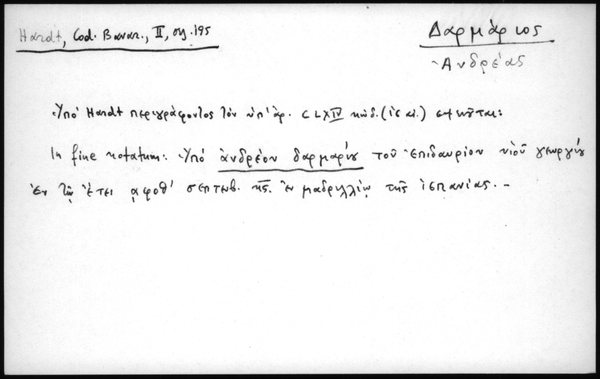 Hardt, Cod. Bavar., II, ση. 195
Δαρμάριος
Ἀνδρέας
Ὑπὸ Hardt περιγράφοντος τὸν ὑπ' ἀρ. CLXIV κώδ. (ις αἰ.)
In fine notatum: Ὑπὸ ἀνδρέου δαρμαρίου τοῦ ἐπιδαυρίου υἱοῦ γεωργίου
ἐν τῷ ἔτει αφοθ' σεπτεμβ. ἐν μαδριλλίῳ τῆς ἱσπανίας. –